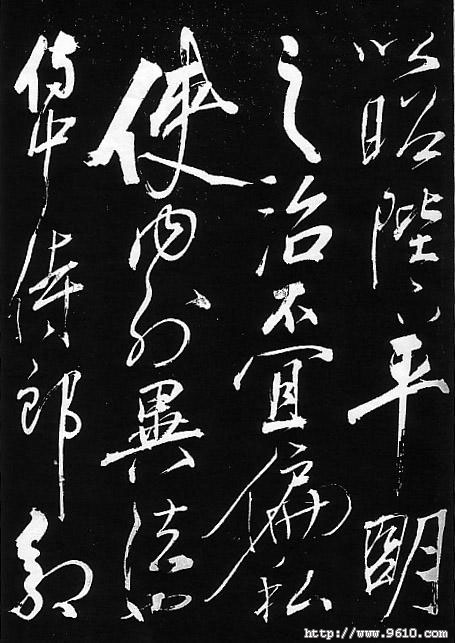 以昭陛下平明
之治不宜偏私
使内外異法也
侍中侍郎郭
http://www.9610.com